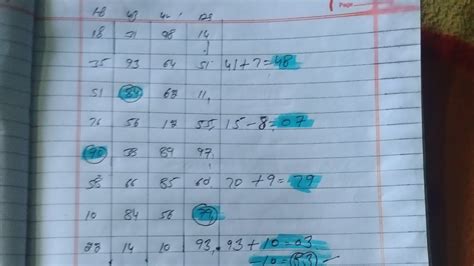 Page
18 21 98 14
35 93 64 51 41+7=48
51 63 11
76 56 13 55, 15-8=07
90 38 89 97
58 66 85 60, 70+9=79
10 84 56 39
23 14 10 93, 93+10=03
-10=(83)✓